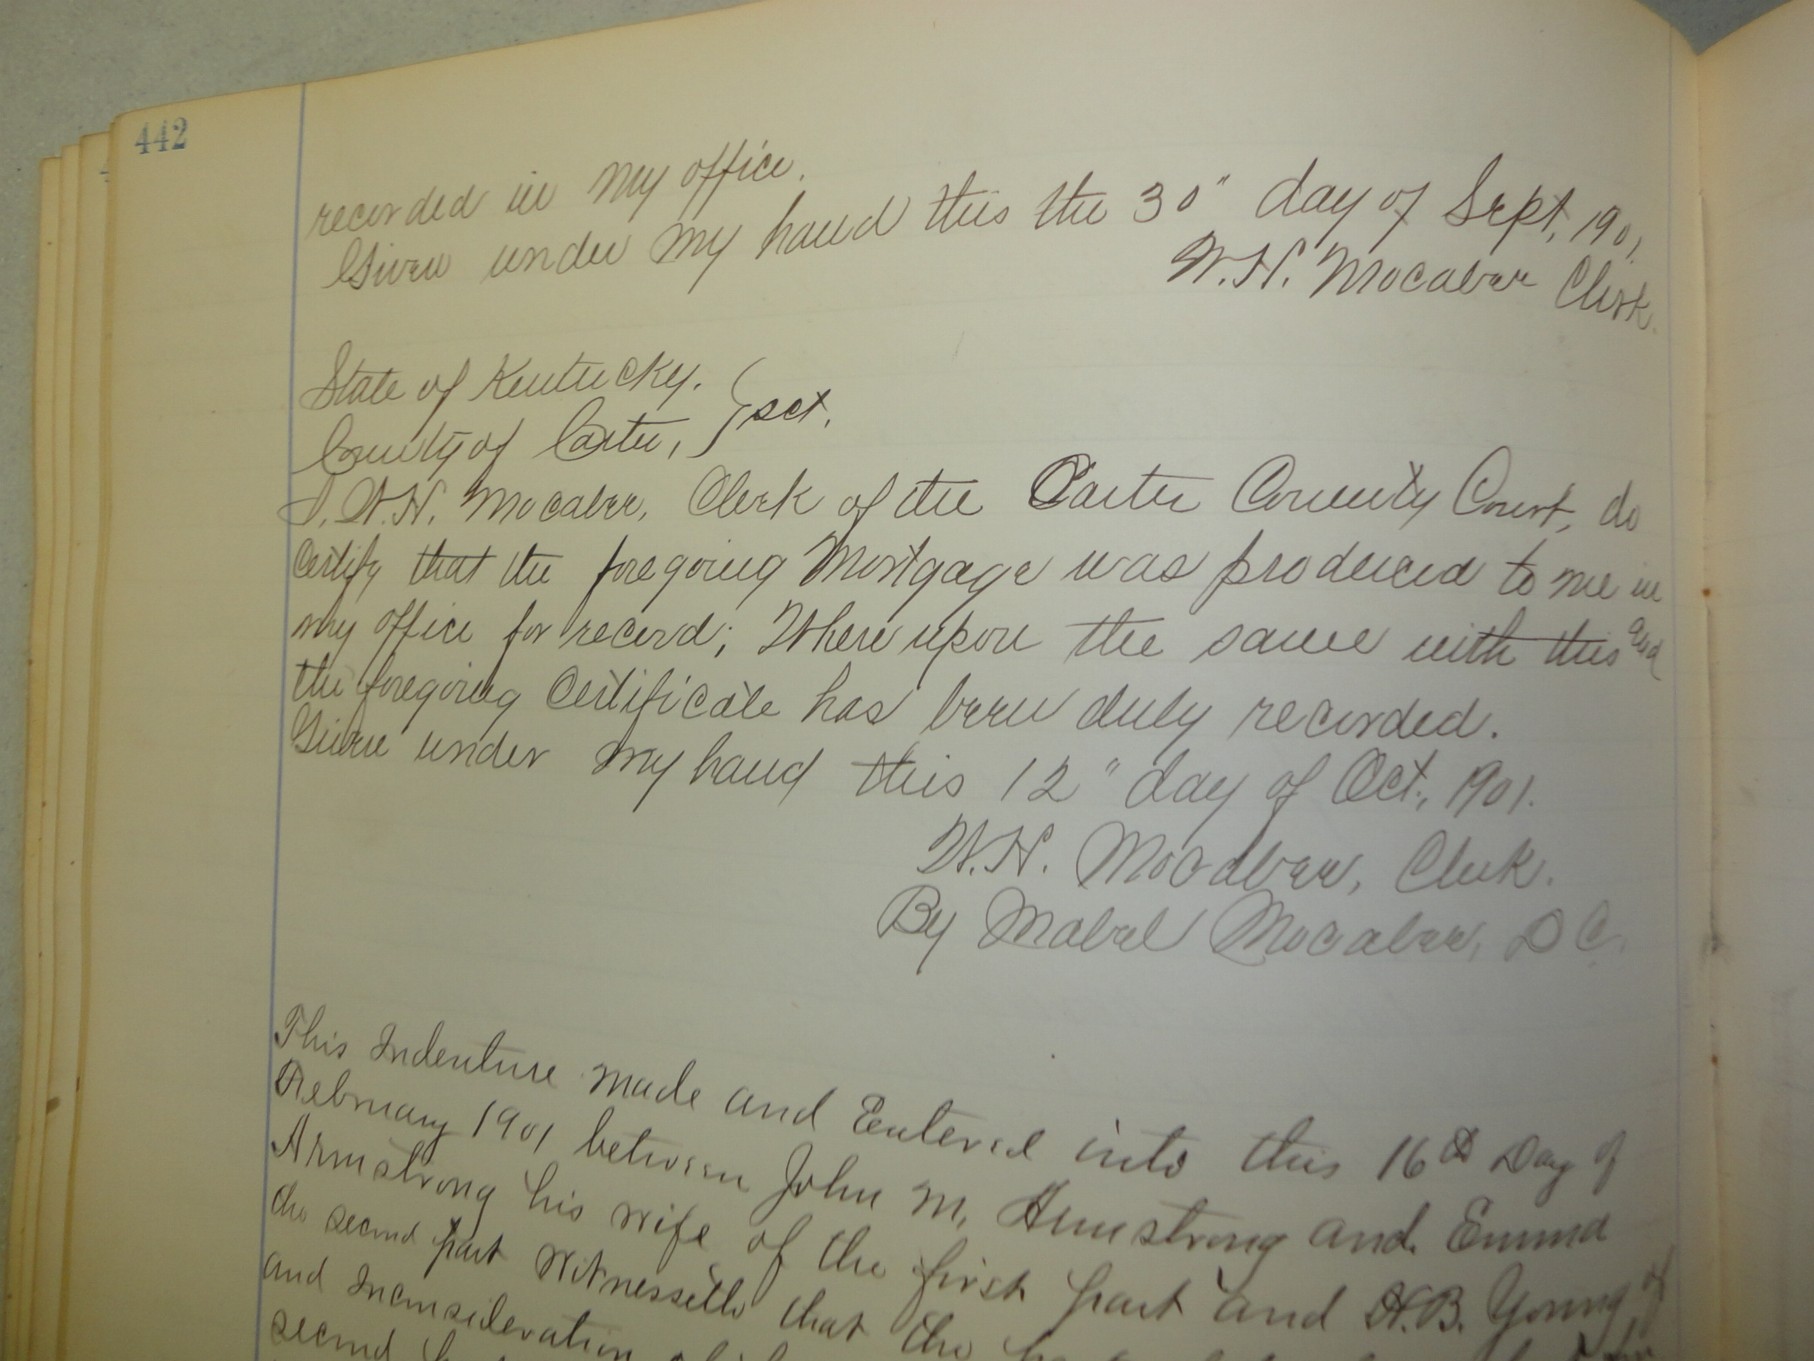 442
recorded in my office.
Given under my hand this the 30" day of Sept, 1901,
W.H. Mocabee Clerk.
State of Kentucky. }
County of Carter, } sct.
I, W.H. Mocabee, Clerk of the Carter County Court, do
Certify that the foregoing Mortgage was produced to me in
my office for record; Where upon the same with this and
the foregoing Certificate has been duly recorded.
Given under my hand this 12" day of Oct., 1901.
W.H. Mocabee, Clerk.
By Mabel Mocabee, D C.
This Indenture made and Entered into this 16th Day of
February 1901 between John M. Armstrong and Emma
Armstrong his wife of the first part and H.B. Young of
the second part Witnesseth that the
and Inconsideration
second